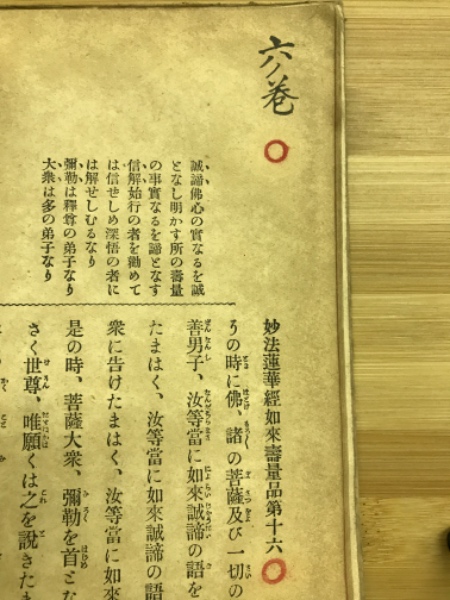 六ノ巻
誠諦佛心の實なるを誠
となし明かす所の壽量
の事實なるを諦となす
信解始行の者を勸めて
は信ぜしめ深悟の者に
は解せしむるなり
彌勒は釋尊の弟子なり
大衆は多の弟子なり
妙法蓮華經如來壽量品第十六
の時に佛、諸の菩薩及び一切の
善男子、汝等當に如來誠諦の語を
たまはく、汝等當に如來誠諦の語
衆に告げたまはく、汝等當に如來
是の時、菩薩大衆、彌勒を首とな
さく世尊、唯願くは之を說きたま